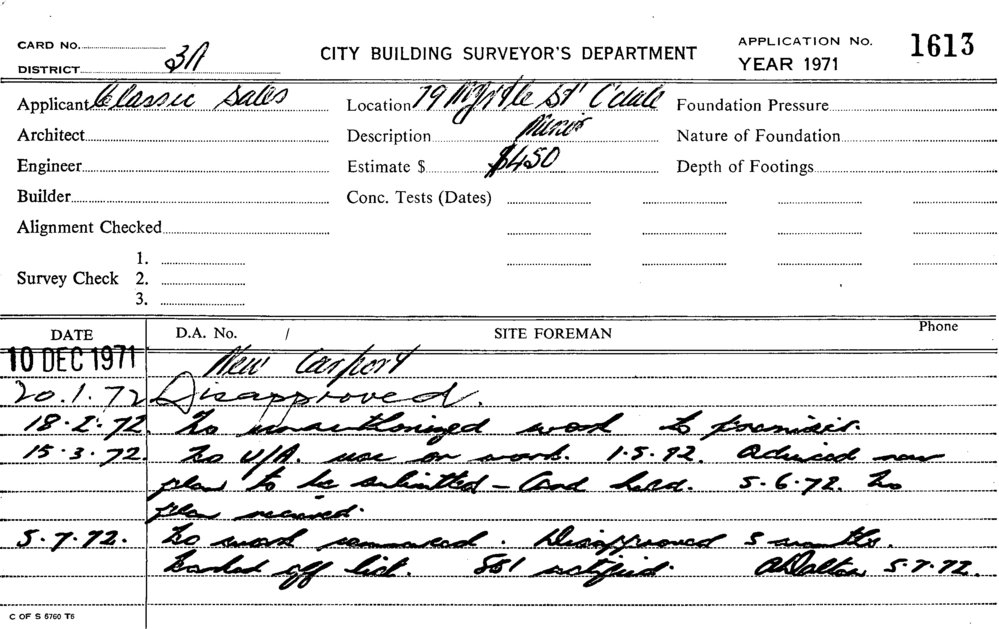 CARD No.
DISTRICT 3A
CITY BUILDING SURVEYOR'S DEPARTMENT
APPLICATION No. 1613
YEAR 1971
Applicant Classic Sales
Location 79 Myrtle St C'dale
Foundation Pressure
Architect
Description Minor
Nature of Foundation
Engineer
Estimate $ $450
Depth of Footings
Builder
Conc. Tests (Dates)
Alignment Checked
Survey Check 1.
2.
3.
DATE D.A. No. / SITE FOREMAN Phone
10 DEC 1971 New Carport
20.1.72 Disapproved.
18.2.72. No unauthorized work to premises.
15.3.72. No U/A. use or work. 1.5.72. Advised new
plan to be submitted - Card held. 5.6.72. No
plan received.
5.7.72. No work commenced. Disapproved 5 months.
off list. notified. ADalton 5.7.72.
C OF S 6760 T6